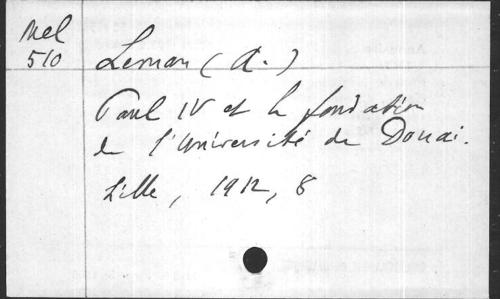 Mel
510
Leman (A.)
Paul IV et la fondation
de l'Université de Douai.
Lille, 1912, 8